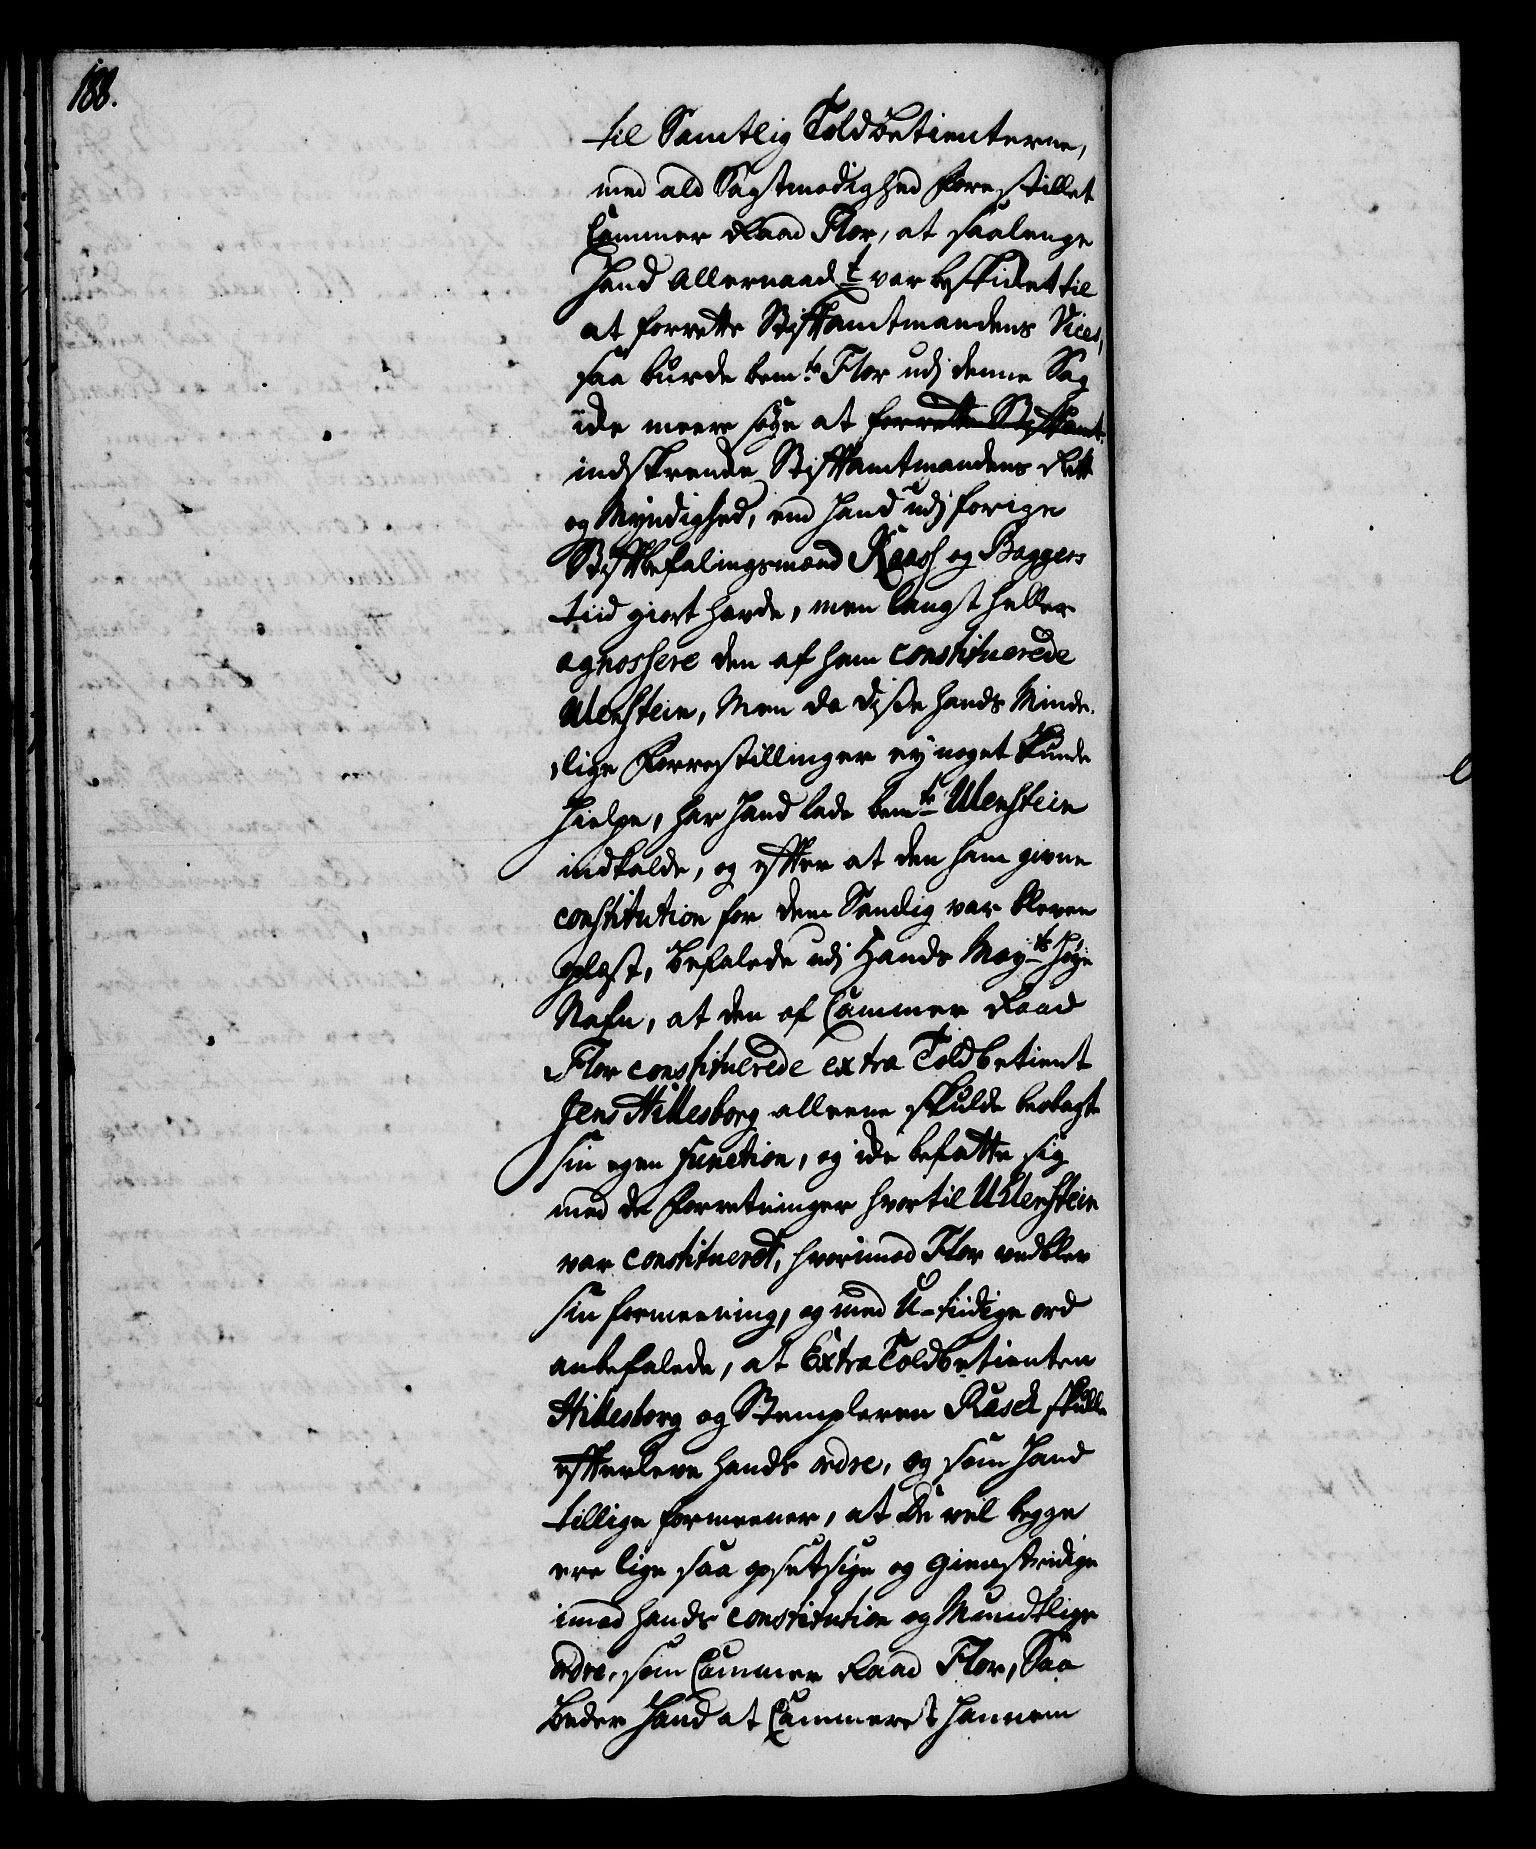 188.
til Samtlig Toldbetienterne,
med ald Sagtmodighed forestillet
Cammer Raad Flor, at saalenge
Hand Allernaad.t var beskiket til
at forrette Stiftamtmandens Vices,
saa burde bem.te Flor udj denne Sag
icke meere søge at forrette Stiftamt-
indskrenke Stiftamtmandens Rett
og Myndighed, end hand udj forige
Stiftbefalingsmænd Kaass og Baggers
tiid giort havde, men langt heller
agnossere den af ham constituerede
Ulenstein, Men da disse hands Minde-
lige Forrestillinger ey noget kunde
hielpe, har Hand lade bem.te Ulenstein
indkalde, og efter at den ham givne
constitution for dem Samtlig var bleven
oplæst, befalede udj Hands May.ts høye
Nafn, at den af Cammer Raad
Flor constituerede extra Toldbetient
Jens Hillesborg alleene skulde beobagte
sin egen function, og icke befatte sig
med de Forretninger hvortil Ullenstein
var constitueret, hvorimod Flor vedblev
sin formeening, og med U-tiidige ord
anbefalede, at Extra Toldbetienten
Hillesborg og Stempleren Rusck skulle
efterleve hands ordre, og som Hand
tillige formeener, at De vel begge
ere lige saa opsetsige og gienstridige
imod hands constitution og Mundtlige
ordre, som Cammer Raad Flor, Saa
beder Hand at Cammeret hannem